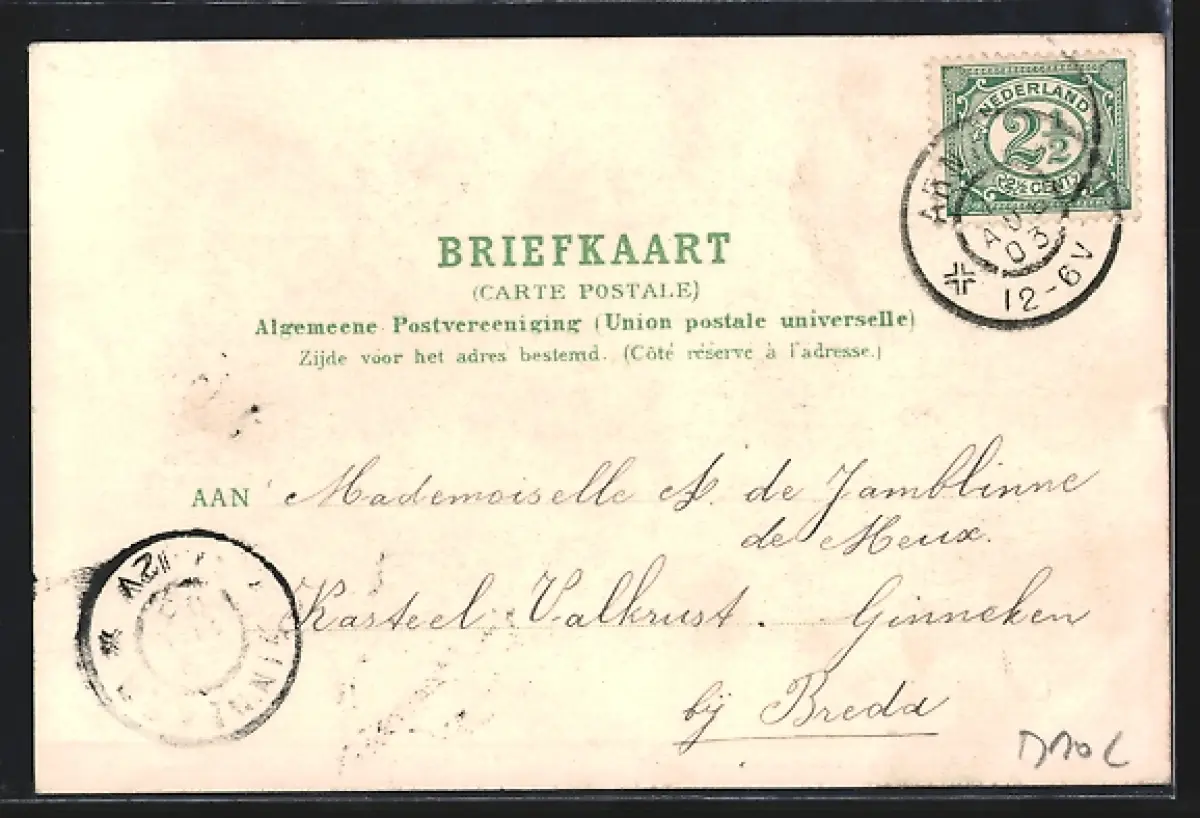 NEDERLAND
2½
2½ CENT
AUG
03
12-6V
BRIEFKAART
(CARTE POSTALE)
Algemeene Postvereeniging (Union postale universelle)
Zijde voor het adres bestemd. (Côté réservé à l'adresse.)
AAN Mademoiselle N. de Jamblinne
de Meux.
Kasteel Valkrust. Ginneken
bij Breda
12V